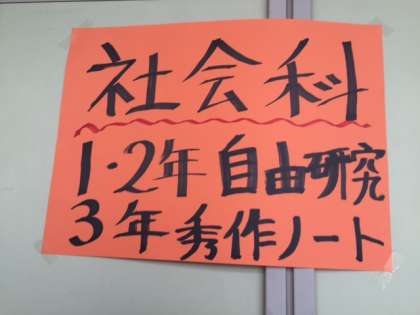 社会科
1・2年 自由研究
3年 秀作ノート